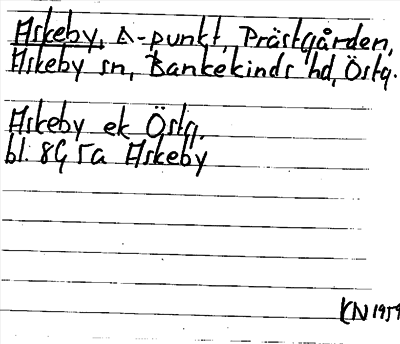 Askeby, Δ-punkt, Prästgården,
Askeby sn, Bankekinds hd, Östg.
Askeby ek Östg.
bl. 8G 5a Askeby
KN 1959